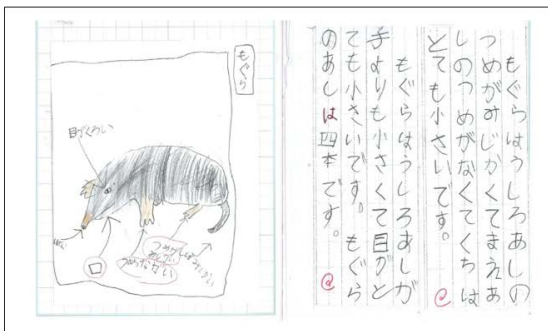 もぐらはうしろあしの
つめがみじかくてまえあ
しのつめがなくてくちは
とても小さいです。
もぐらはうしろあしが
手よりも小さくて目がと
ても小さいです。もぐら
のあしは四本です。
もぐら
目がくろい
口